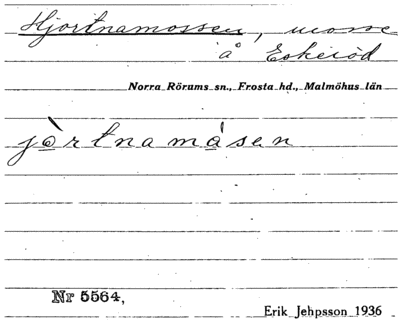 Hjortnamossen, mosse
å Eskeröd
Norra Rörums sn., Frosta hd., Malmöhus län
jòrtnamåsen
Nr 5564,
Erik Jehpsson 1936